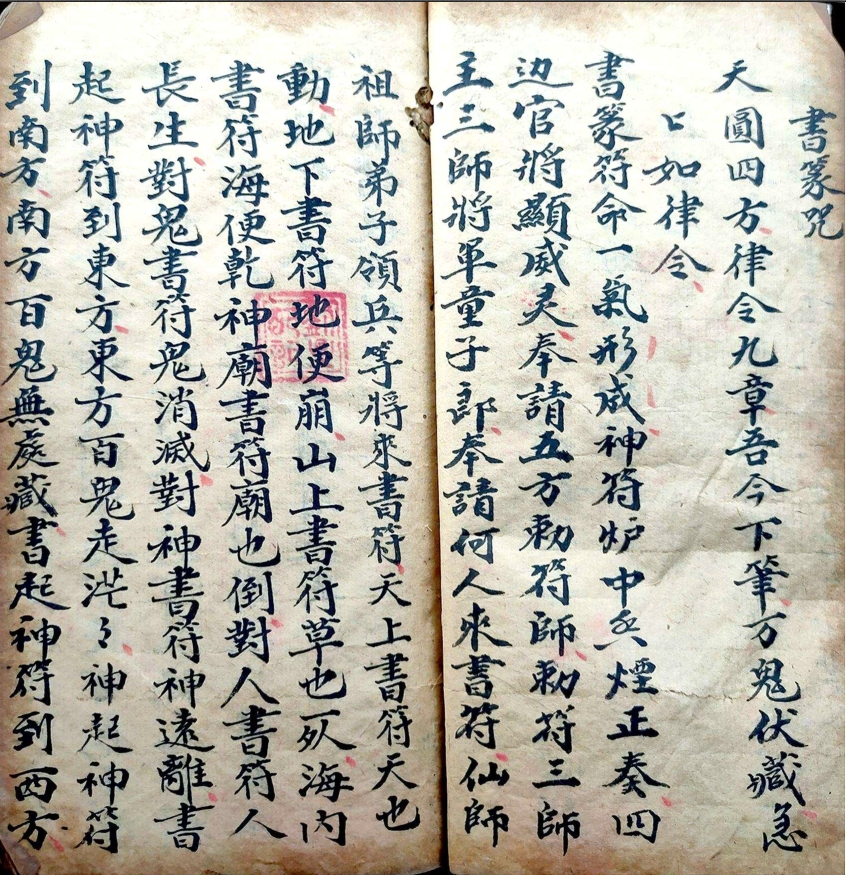 書篆咒
天圓四方律令九章吾今下筆万鬼伏藏急
〻如律令
書篆符命一氣形成神符炉中兵煙正奏四
边官將顯威灵奉請五方勅符師勅符三師
主三師將軍童子郎奉請何人來書符仙師
祖師弟子領兵等將來書符天上書符天也
動地下書符地便崩山上書符草也死海内
書符海便乾神廟書符廟也倒對人書符人
長生對鬼書符鬼消滅對神書符神遠離書
起神符到東方東方百鬼走茫〻神起神符
到南方南方百鬼無處藏書起神符到西方